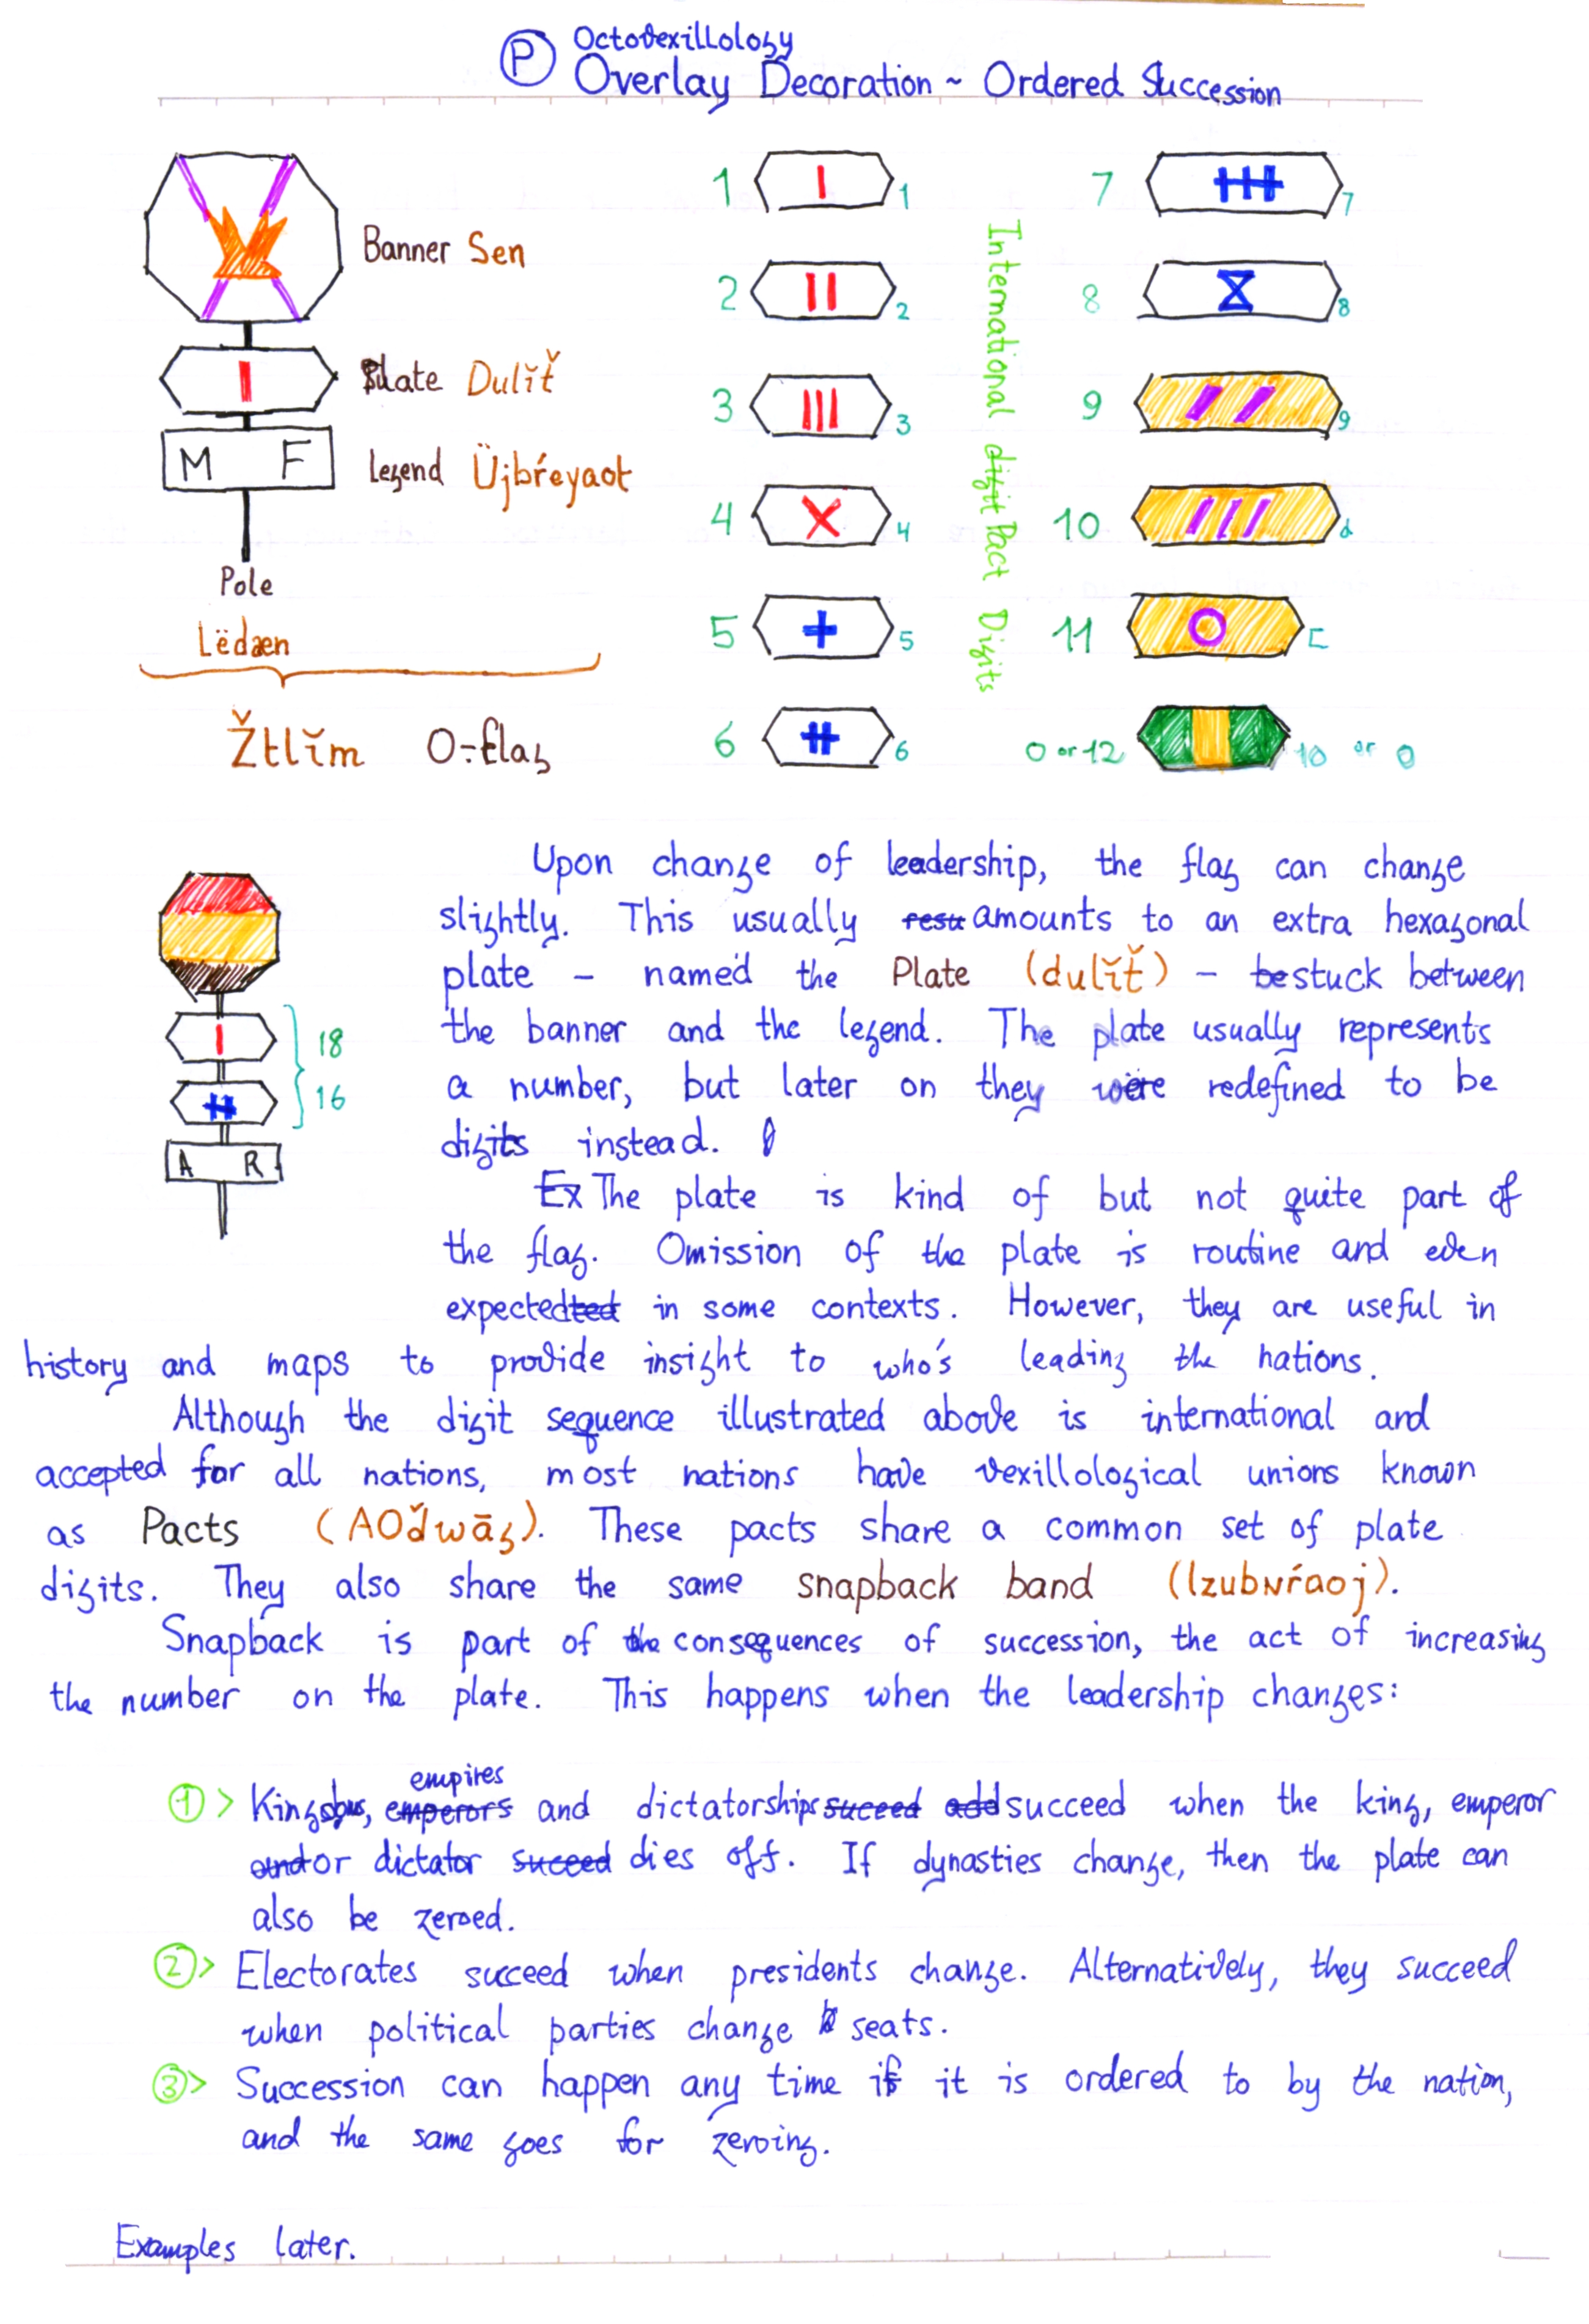 P Octovexillology
Overlay Decoration ~ Ordered Succession
Banner Sen
Plate Dulǐť
M F Legend Üjbŕeyaot
Pole
Lëdæn
Žtlǐm O-flag
1 1
2 2
3 3
4 4
5 5
6 6
International digit Pact Digits
7 7
8 8
9 9
10 d
11
0 or 12 10 or 0
18
16
A R
Upon change of leadership, the flag can change
slightly. This usually resu amounts to an extra hexagonal
plate - named the Plate (dulǐť) - bestuck between
the banner and the legend. The plate usually represents
a number, but later on they were redefined to be
digits instead.
Ex The plate is kind of but not quite part of
the flag. Omission of the plate is routine and even
expectedted in some contexts. However, they are useful in
history and maps to provide insight to who's leading the nations.
Although the digit sequence illustrated above is international and
accepted for all nations, most nations have vexillological unions known
as Pacts (AOďwāg). These pacts share a common set of plate
digits. They also share the same snapback band (lzubNŕaoj).
Snapback is part of the consequences of succession, the act of increasing
the number on the plate. This happens when the leadership changes:
empires
1 > emperors and dictatorships suceed add succeed when the king, emperor
and or dictator suceed dies off. If dynasties change, then the plate can
also be zeroed.
2 > Electorates succeed when presidents change. Alternatively, they succeed
when political parties change seats.
3 > Succession can happen any time if it is ordered to by the nation,
and the same goes for zeroing.
Examples later.